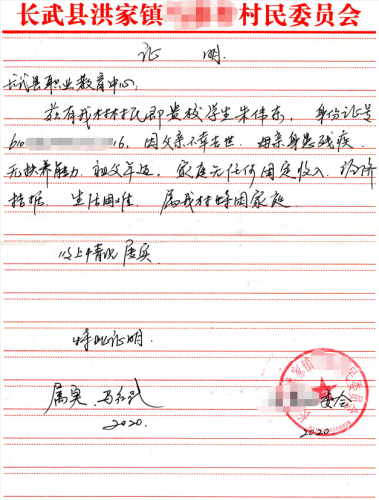 长武县洪家镇 村民委员会
证 明
长武县职业教育中心:
兹有我村村民即贵校学生朱伟东, 身份证号
610 16, 因父亲不幸去世. 母亲身患残疾
无扶养能力. 祖父年迈, 家庭无任何固定收入. 经济
拮据. 生活困难 属我村特困家庭.
以上情况属实.
特此证明.
属实. 马
委会
2020. 2020